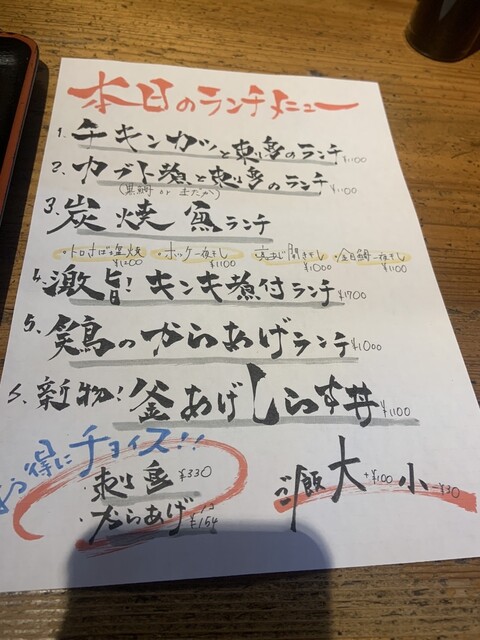 本日のランチメニュー
1. チキンカツと刺身のランチ ¥1100
2. カブト煮と刺身のランチ ¥1100
(黒鯛 or まだか)
3. 炭焼魚ランチ
・トロさば塩焼 ¥1200 ・ホッケ一夜干し ¥1100 ・真あじ開き干し ¥1000 ・金目鯛一夜干し ¥1100
4. 激旨!キンキ煮付ランチ ¥1700
5. 鶏のからあげランチ ¥1000
6. 新物!釜あげしらす丼 ¥1100
お得にチョイス!!
・刺身 ¥330
・からあげ 1コ ¥154
ご飯 大 +¥100 小 -¥30